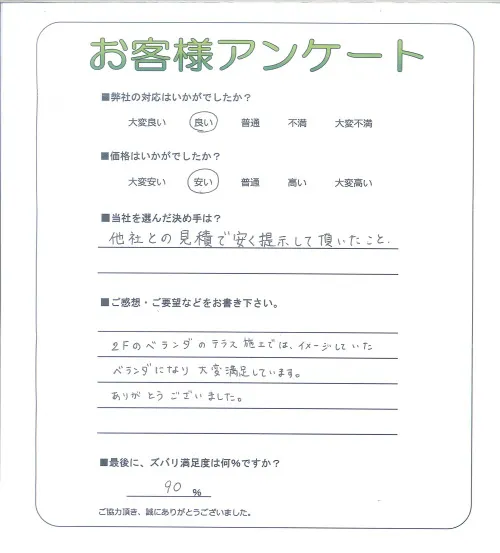 お客様アンケート
■弊社の対応はいかがでしたか？
大変良い 良い 普通 不満 大変不満
■価格はいかがでしたか？
大変安い 安い 普通 高い 大変高い
■当社を選んだ決め手は？
他社との見積で安く提示して頂いたこと.
■ご感想・ご要望などをお書き下さい。
2Fのベランダのテラス施工では、イメージしていた
ベランダになり大変満足しています。
ありがとうございました。
■最後に、ズバリ満足度は何%ですか？
90 %
ご協力頂き、誠にありがとうございました。